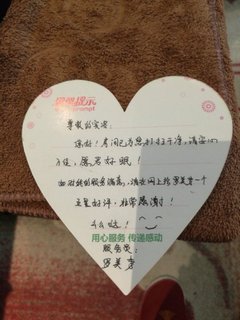 温馨提示
尊敬的宾客：
您好！房间已为您打扫干净，请您放
心入住，愿君好眠！
如对我的服务满意，请在网上给罗美李一个
五星好评，非常感谢！
么么哒！
用心服务 传递感动
服务员：
罗美